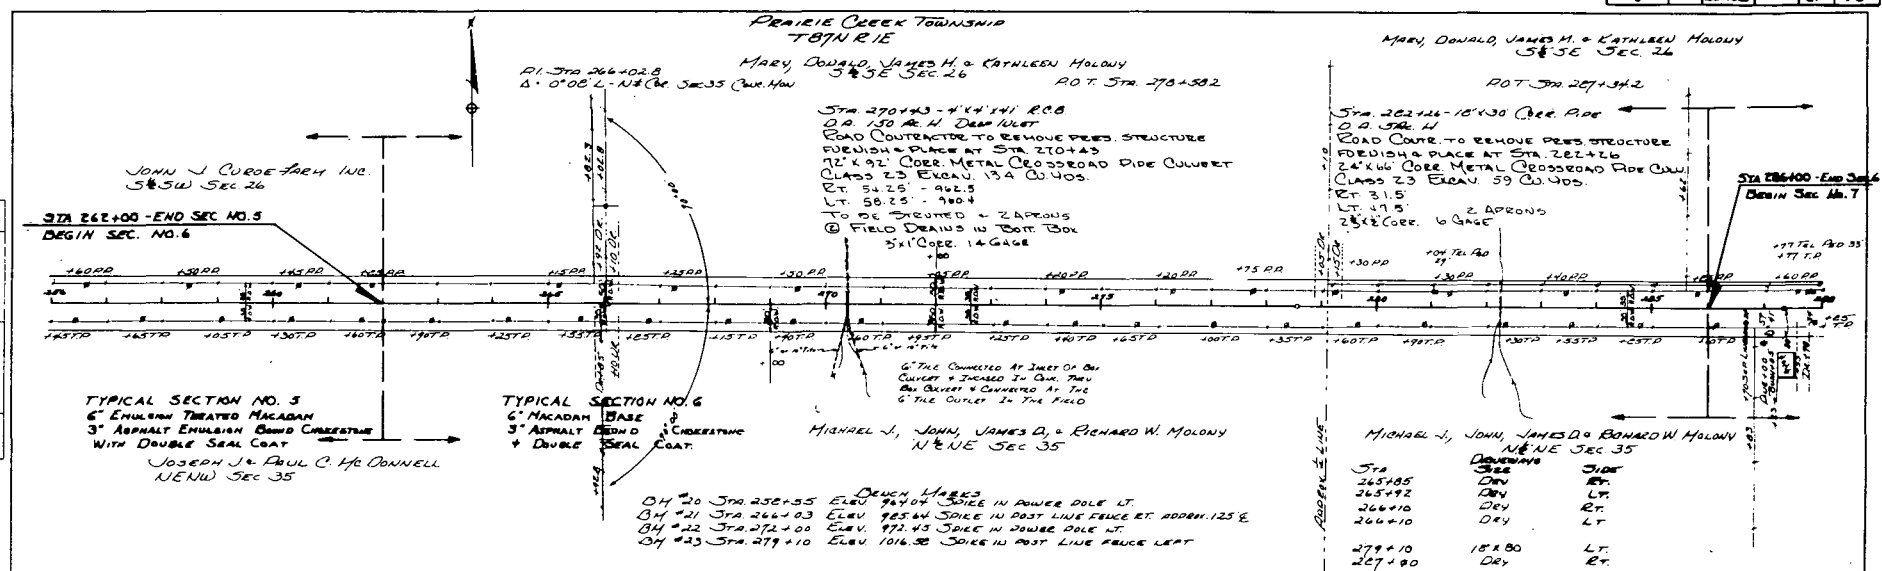 PRAIRIE CREEK TOWNSHIP
T87N R1E
MARY, DONALD, JAMES H. & KATHLEEN MOLONY
S½SE SEC. 26
P.I. STA 266+02.8
Δ = 0°08' L - N¼ COR. SEC 35 CONC. MON
P.O.T. STA. 278+58.2
MARY, DONALD, JAMES H. & KATHLEEN MOLONY
S½SE SEC. 26
P.O.T. STA. 287+34.2
STA. 270+43 - 4'X4'X41' R.C.B.
D.A. 150 AC. H. DROP INLET
ROAD CONTRACTOR TO REMOVE PRES. STRUCTURE
FURNISH & PLACE AT STA. 270+43
72" X 92' CORR. METAL CROSSROAD PIPE CULVERT
CLASS 23 EXCAV. 134 CU. YDS.
RT. 54.25' - 962.5
LT. 58.25' - 960.4
TO BE STRUTTED & 2 APRONS
② FIELD DRAINS IN BOTT. BOX
3"X1" CORR. 14 GAGE
STA. 282+26 - 18"X30' CORR. PIPE
D.A. 5 AC. H
ROAD CONTR. TO REMOVE PRES. STRUCTURE
FURNISH & PLACE AT STA. 282+26
24"X66' CORR. METAL CROSSROAD PIPE CULV.
CLASS 23 EXCAV. 59 CU. YDS.
RT. 31.5'
LT. 47.5' 2 APRONS
16 GAGE
JOHN J. CUROE FARM INC.
S½SW SEC. 26
STA 262+00 - END SEC NO. 5
BEGIN SEC. NO. 6
STA 286+00 - END SEC 6
BEGIN SEC No. 7
+77 TEL PED 33'
+77 T.P.
+04 TEL PED
+60 P.P. +50 P.P. +45 P.P. +15 P.P. +25 P.P. +30 P.P. +20 P.P. +75 P.P. +30 P.P. +30 P.P. +40 P.P. +60 P.P.
260 265 270 275 280 285
+45 T.P. +65 T.P. +05 T.P. +30 T.P. +60 T.P. +90 T.P. +25 T.P. +55 T.P. +85 T.P. +15 T.P. +40 T.P. +60 T.P. +95 T.P. +25 T.P. +40 T.P. +65 T.P. +00 T.P. +35 T.P. +60 T.P. +90 T.P. +30 T.P. +55 T.P. +85 T.P. +10 T.P.
6" TILE CONNECTED AT INLET OF BOX
CULVERT & INCASED IN CONC. THRU
BOX CULVERT & CONNECTED AT THE
6" TILE OUTLET IN THE FIELD
TYPICAL SECTION NO. 5
6" EMULSION TREATED MACADAM
3" ASPHALT EMULSION BOUND CHOKESTONE
WITH DOUBLE SEAL COAT
JOSEPH J. & PAUL C. MC DONNELL
NENW SEC 35
TYPICAL SECTION NO. 6
6" MACADAM BASE
3" ASPHALT BOUND CHOKESTONE
+ DOUBLE SEAL COAT.
MICHAEL J., JOHN, JAMES D., & RICHARD W. MOLONY
N½NE SEC 35
MICHAEL J., JOHN, JAMES D. & RICHARD W. MOLONY
N½NE SEC. 35
APPROX ¼ LINE
BENCH MARKS
BM #20 STA. 258+55 ELEV. 964.04 SPIKE IN POWER POLE LT.
BM #21 STA. 266+03 ELEV. 985.64 SPIKE IN POST LINE FENCE RT. APPROX. 125' ℄
BM #22 STA. 272+00 ELEV. 972.45 SPIKE IN POWER POLE LT.
BM #23 STA. 279+10 ELEV. 1016.58 SPIKE IN POST LINE FENCE LEFT
DRIVEWAYS
STA SIZE SIDE
265+85 DRY RT.
265+92 DRY LT.
266+10 DRY RT.
266+10 DRY LT
279+10 18"X80 LT.
287+00 DRY RT.